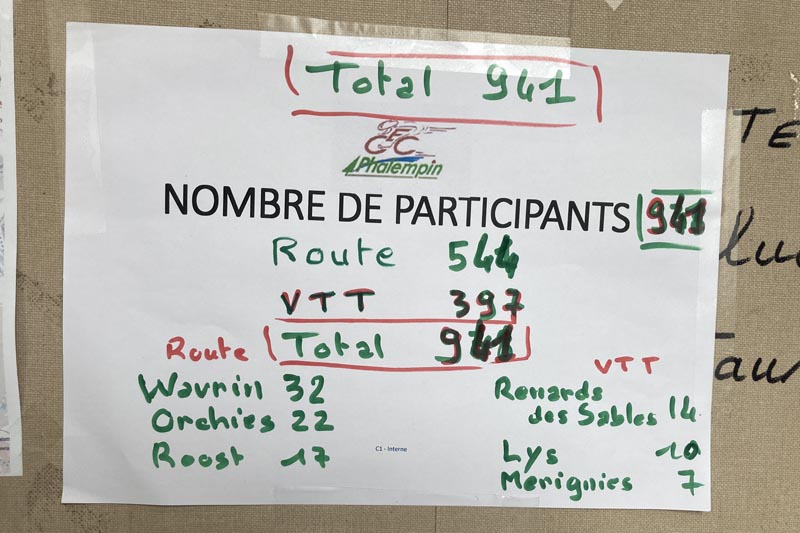 Total 941
CC
Phalempin
NOMBRE DE PARTICIPANTS 941
Route 544
VTT 397
Total 941
Route
Wavrin 32
Orchies 22
Roost 17
VTT
Renards
des Sables 14
Lys 10
Merignies 7
C1 - Interne